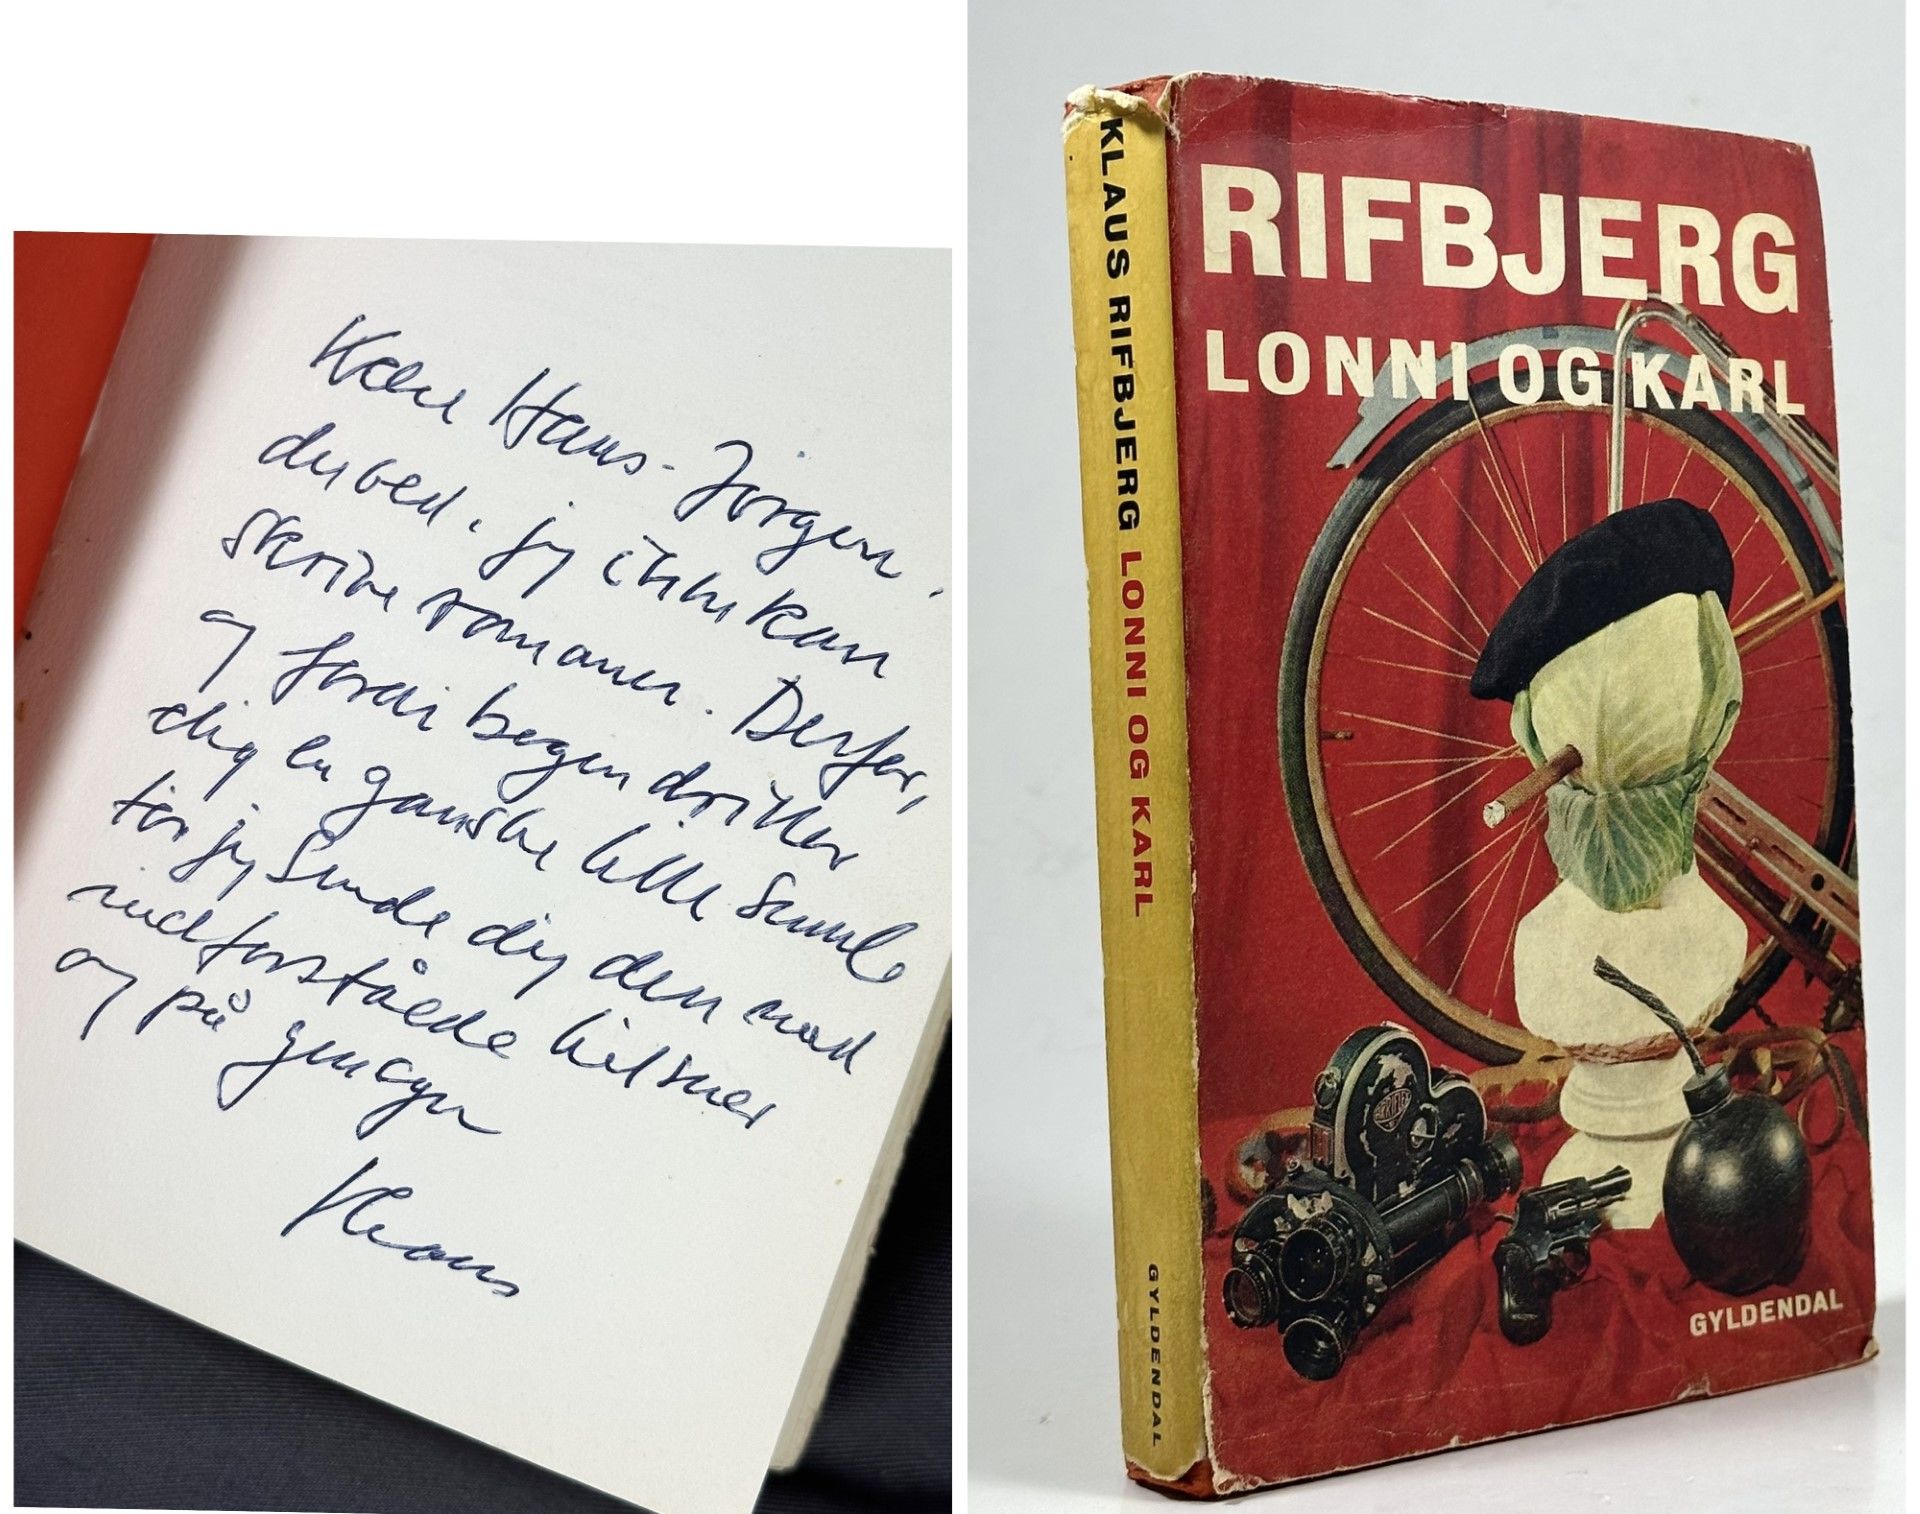 Kære Hans-Jørgen.
du ved, jeg ikke kan
skrive romaner. Derfor,
og fordi bogen driller
dig en ganske lille smule
tør jeg sende dig den med
indforståede hilsner
og på gensyn
Klaus
KLAUS RIFBJERG LONNI OG KARL
GYLDENDAL
RIFBJERG
LONNI OG KARL
GYLDENDAL